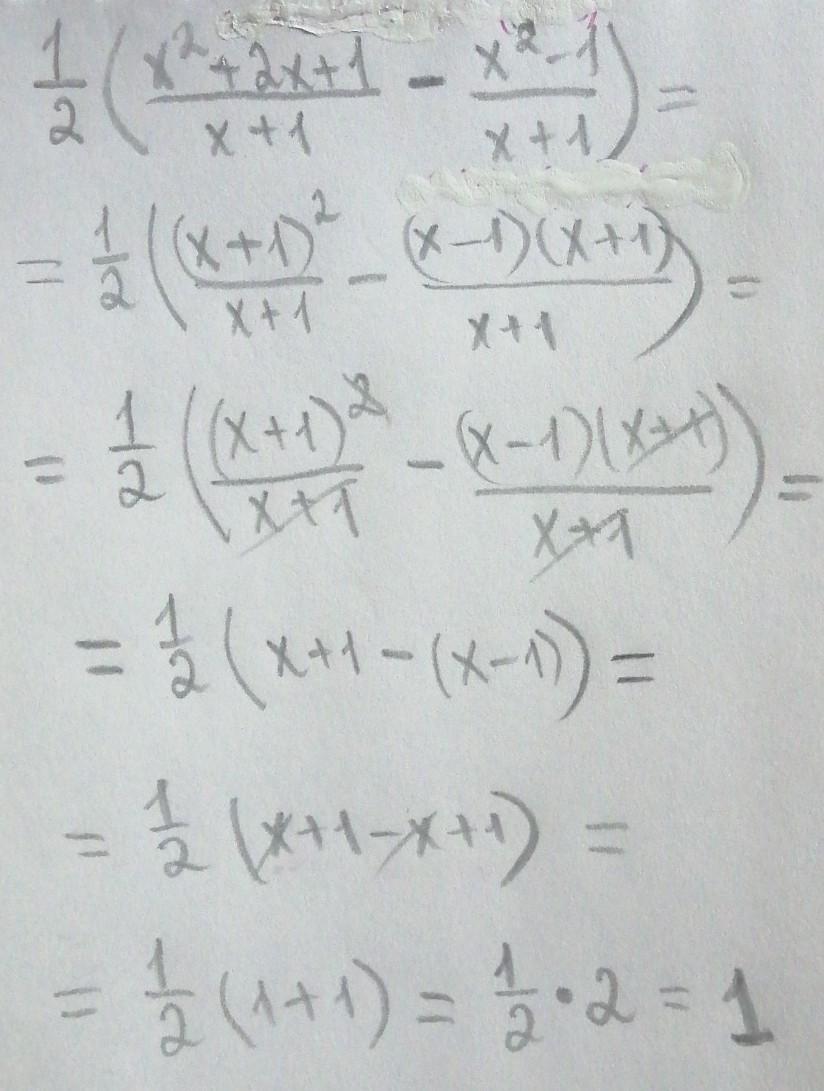 1/2 ( (x²+2x+1)/(x+1) - (x²-1)/(x+1) ) =
= 1/2 ( (x+1)²/(x+1) - (x-1)(x+1)/(x+1) ) =
= 1/2 ( (x+1)²/(x+1) - (x-1)(x+1)/(x+1) ) =
= 1/2 ( x+1-(x-1) ) =
= 1/2 ( x+1-x+1 ) =
= 1/2 (1+1) = 1/2 · 2 = 1